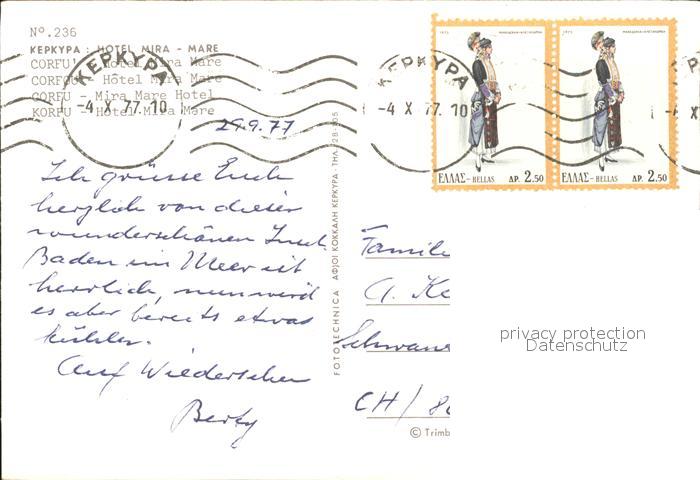 Nº.236
ΚΕΡΚΥΡΑ : HOTEL MIRA - MARE
CORFU' - Hotel Mira Mare
CORFOU - Hôtel Mira Mare
CORFU - Mira Mare Hotel
KORFU - Hotel Mira Mare
ΚΕΡΚΥΡΑ
-4 X 77.10
ΚΕΡΚΥΡΑ
-4 X 77.10
1973
ΜΑΚΕΔΟΝΙΑ-ΑΛΕΞΑΝΔΡΕΙΑ
ΕΛΛΑΣ-HELLAS ΔΡ. 2.50
1973
ΜΑΚΕΔΟΝΙΑ-ΑΛΕΞΑΝΔΡΕΙΑ
ΕΛΛΑΣ-HELLAS ΔΡ. 2.50
29.9.77
Ich grüsse Euch
herzlich von dieser
wunderschönen Insel
Baden im Meer ist
herrlich, nun wird
es aber bereits etwas
kühler.
Auf Wiedersehen
Berty
FOTOTECHNICA ΑΦΟΙ ΚΟΚΚΑΛΗ ΚΕΡΚΥΡΑ - ΤΗΛ.
Famili
A. Ke
Schwan
CH/8
© Trimb
privacy protection
Datenschutz